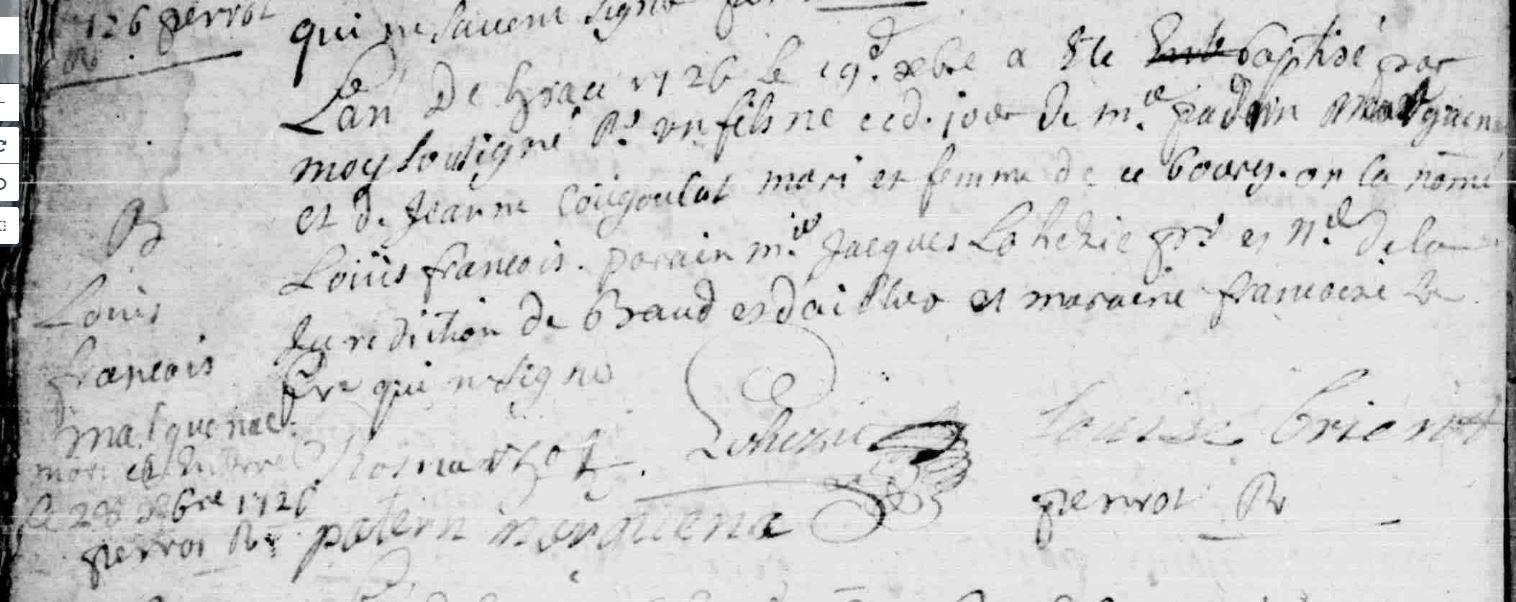 126 perrot
Rr.
qui ne savent signe
Lan De Grace 1726 le 19.e xbre a Ete baptisé par
moy Sousigné Rr. un fils né ced. jour de m.re padern
et de Jeanne Cougoulat mari et femme de ce bourg. on la nomé
Loüis francois. parain m.re Jacques Lohezic pr. et n.re de la
Juridiction de Baud et dailleurs et maraine francoise Le
qui ne signe
B
Louis
francois
marguenae.
mort et Enterré
le 28 xbre 1726
perrot Rr.
Lohezic
Louise Brienot
patern morguena
perrot Rr